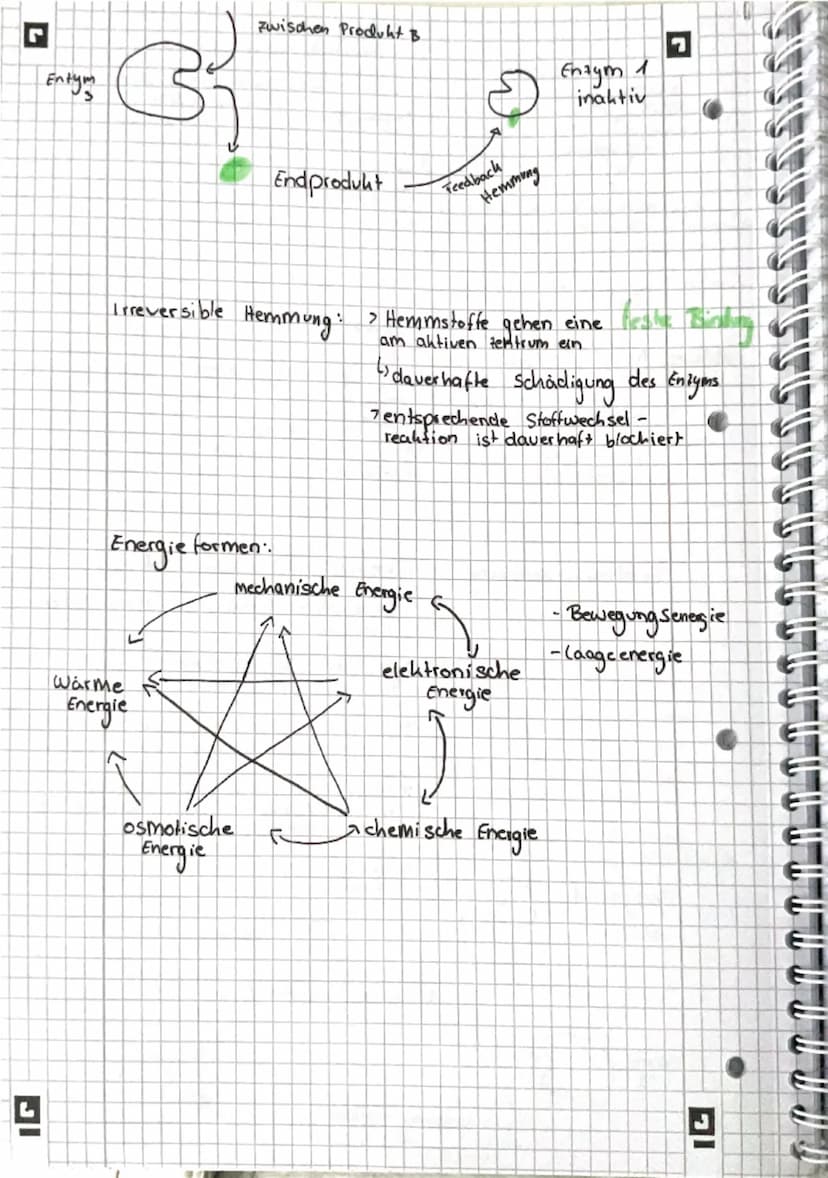 zwischen Produkt B
Enzym
3
Enzym 1
inaktiv
Endprodukt
Feedback
Hemmung
Irreversible Hemmung: > Hemmstoffe gehen eine feste Bindung
am aktiven Zentrum ein
↳ dauerhafte Schädigung des Enzyms
> entsprechende Stoffwechsel-
reaktion ist dauerhaft blockiert
Energieformen:
mechanische Energie
- Bewegungsenergie
- Laageenergie
elektronische
Energie
Wärme
Energie
osmotische
Energie
chemische Energie